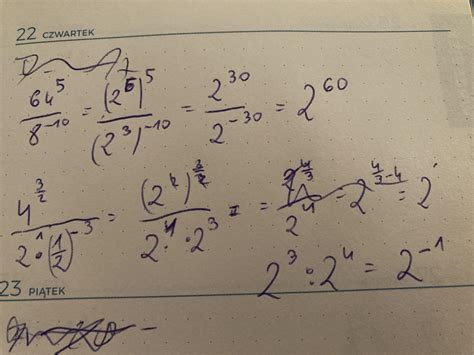 22 CZWARTEK
64^5 / 8^-10 = (2^6)^5 / (2^3)^-10 = 2^30 / 2^-30 = 2^60
4^(3/2) / 2^1 · (1/2)^-3 = (2^2)^(3/2) / 2^1 · 2^3 = = / 2^4 = 2^(4/3 - 4) = 2
2^3 : 2^4 = 2^-1
23 PIĄTEK